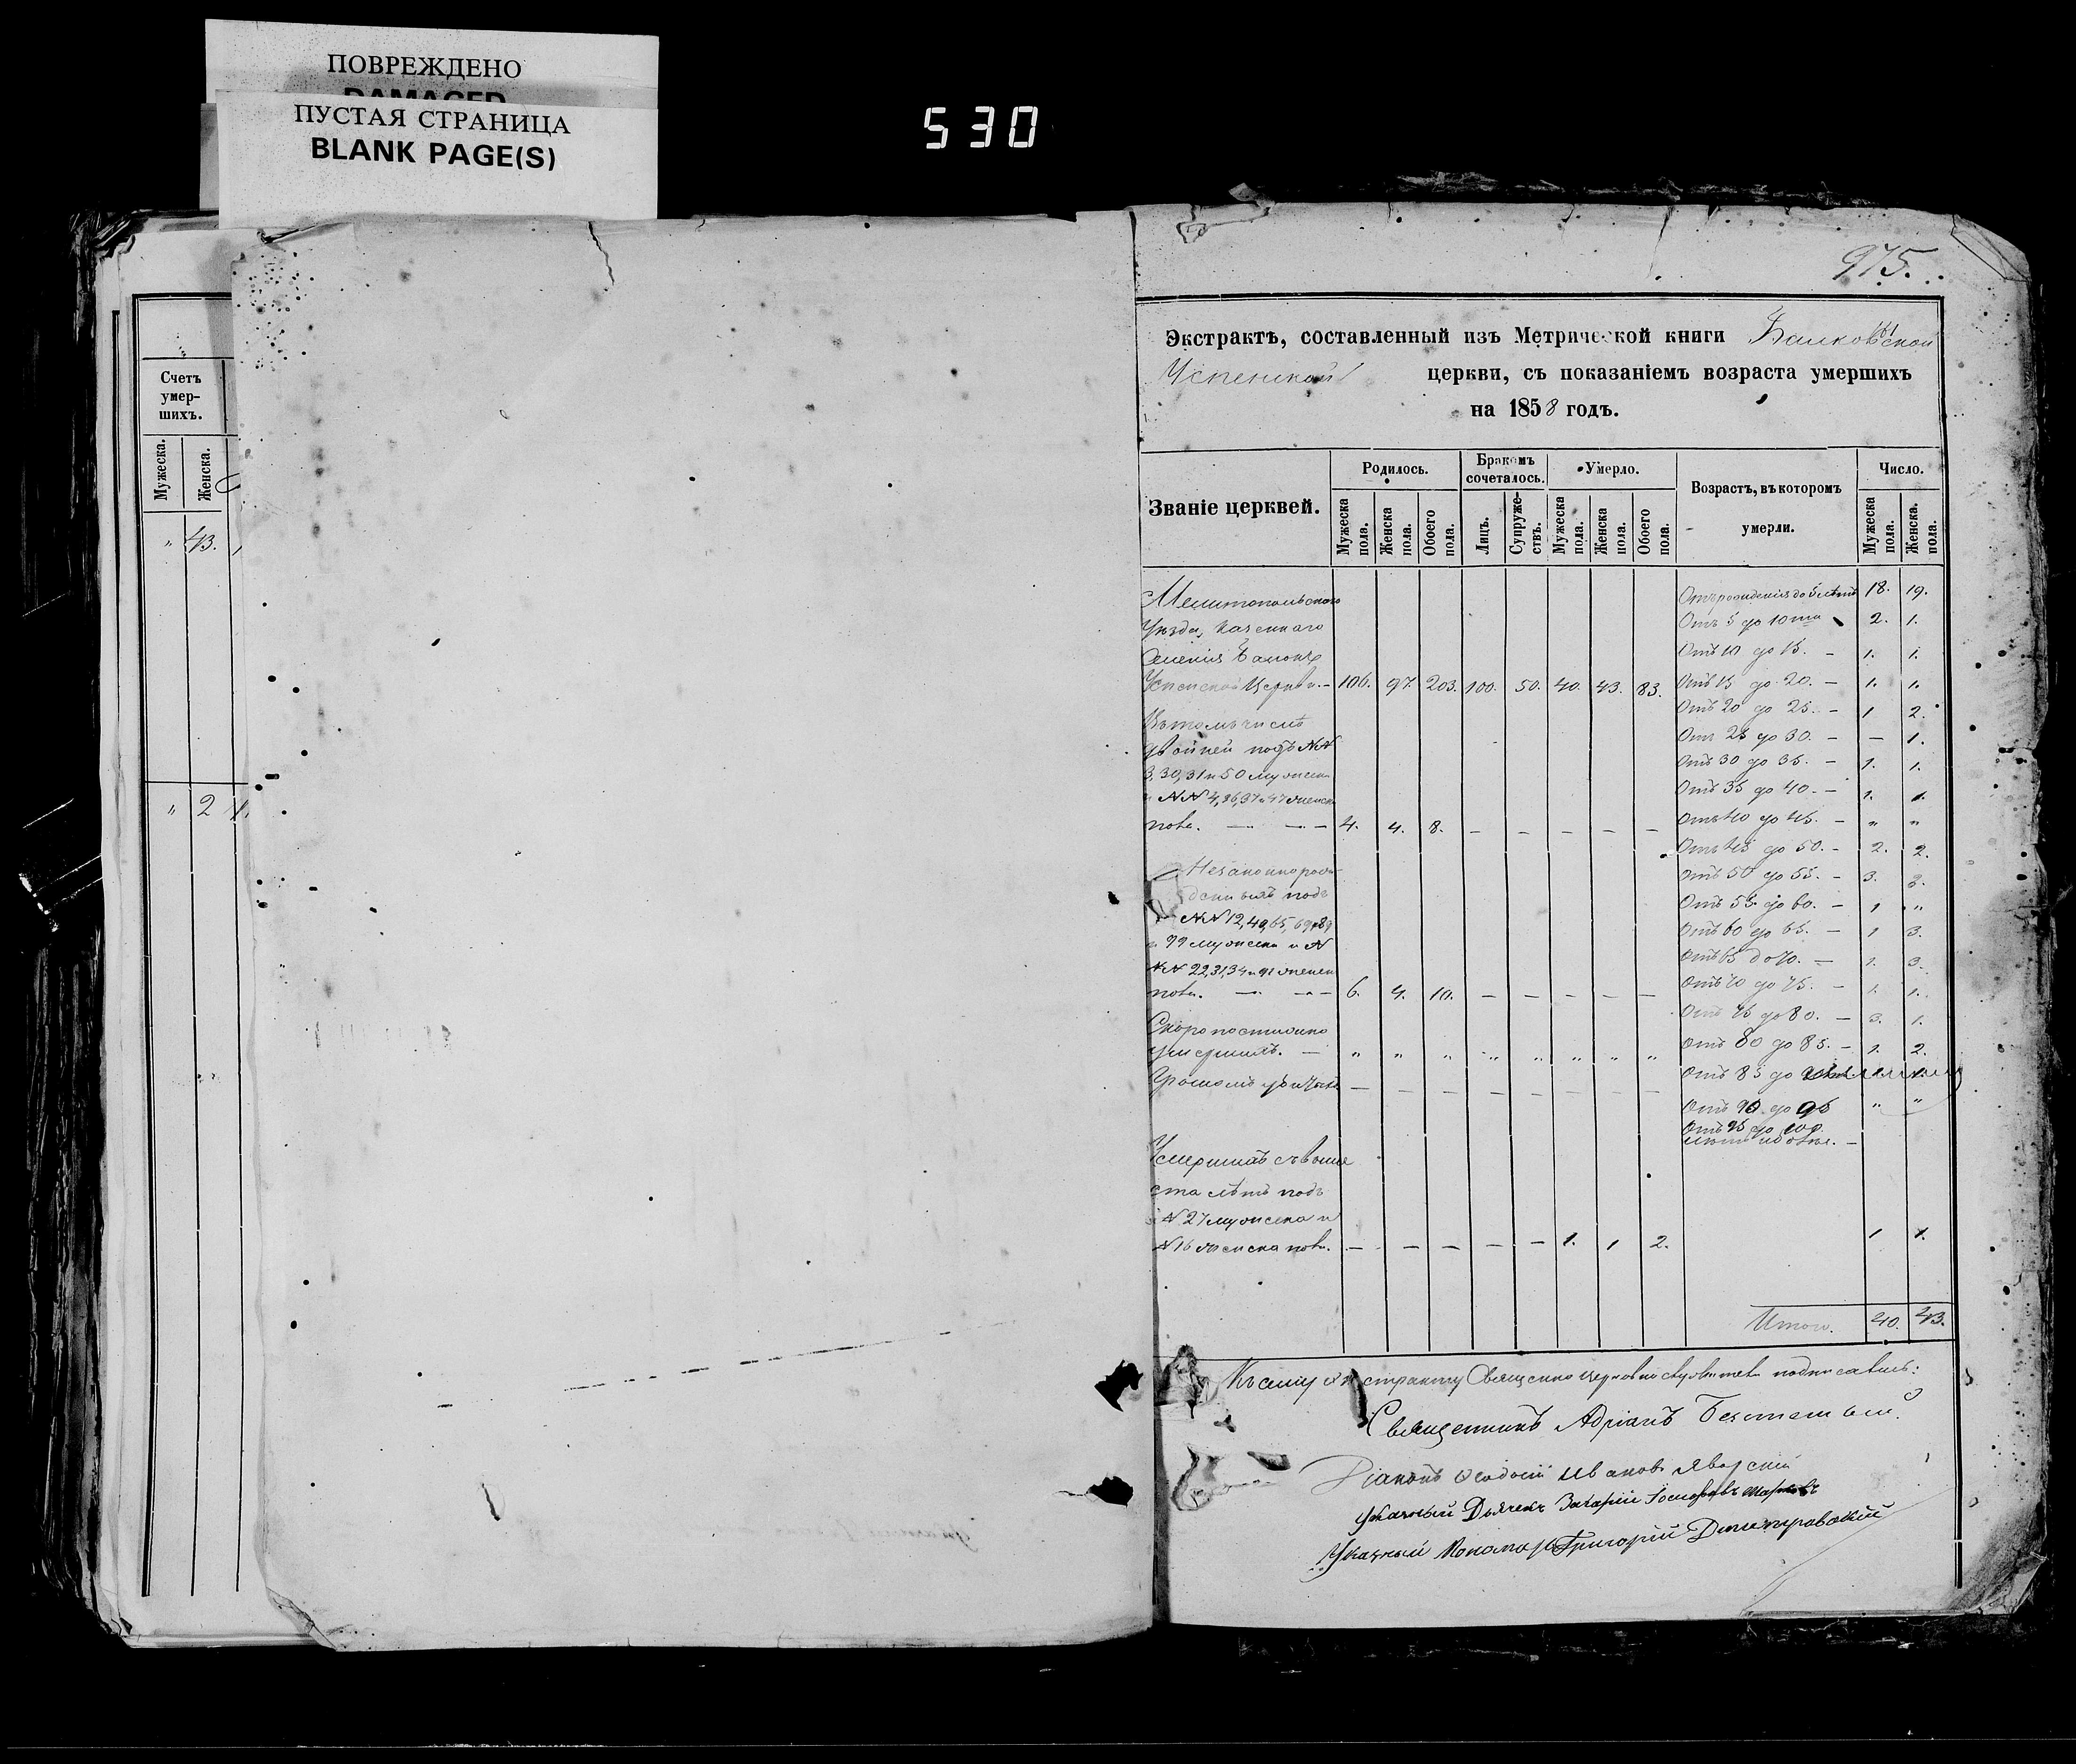 ПОВРЕЖДЕНО
DAMAGED
ПУСТАЯ СТРАНИЦА
BLANK PAGE(S)
530
Счетъ
умер-
шихъ.
Мужеска. Женска.
" 43.
" 2
975.
Экстрактъ, составленный изъ Метрической книги
Успенской церкви, съ показаніемъ возраста умершихъ
на 1858 годъ.
Званіе церквей. Родилось. Бракомъ сочеталось. Умерло. Возрастъ, въ которомъ умерли. Число.
Мужеска пола. Женска пола. Обоего пола. Лицъ. Супруже-ствъ. Мужеска пола. Женска пола. Обоего пола. Мужеска пола. Женска. пола.
Мелитопольскаго
Уѣзда, Казеннаго
Селенія
Успенской Церкви.- 106. 97. 203. 100. 50. 40. 43. 83.
Въ томъ числѣ
двойней подъ NN
3, 30, 31 и 50 мужеска
и NN 4, 36, 37 и 47 женска
пола. — — 4. 4. 8. – – – – –
Незаконнорож-
денныхъ подъ
NN 12, 49, 65, 69, 89
и 99 мужеска и N
NN 22, 31, 34 и 91 женск
пола. — — 6. 4. 10. – – – – –
Скоропостижно
умершихъ. — " " " " " " " "
Громомъ убитыхъ — – – – – – – –
Умершихъ свыше
ста лѣтъ подъ
N 27 мужеска и
N 16 женска пола. – – – – – 1. 1 2. 1 1.
Отъ рожденія до 5 лѣтъ 18. 19.
Отъ 5 до 10ти 2. 1.
Отъ 10 до 15. – 1. 1.
Отъ 15 до 20. – 1. 1.
Отъ 20 до 25. – 1 2.
Отъ 25 до 30. – — 1.
Отъ 30 до 35. – 1. 1.
Отъ 35 до 40. – 1. 1.
Отъ 40 до 45. – " "
Отъ 45 до 50. – 2. 2.
Отъ 50 до 55. – 3.
Отъ 55 до 60. – 1 "
Отъ 60 до 65. – 1 3.
Отъ 65 до 70. — 1. 3.
Отъ 70 до 75. – 1. 1.
Отъ 75 до 80. – 3. 1.
Отъ 80 до 85. – 1. 2.
Отъ 85 до
Отъ 90 до 95 " "
Отъ 95 до 100
Итого. 40. 43.
Къ сему экстракту Священно церковно служители подписались:
Священникъ Адріанъ
Діаконъ Ѳеодосій Ивановъ Яворскій
Указный Дьячекъ Захарій
Указный Пономарь Григорій Димитровскій